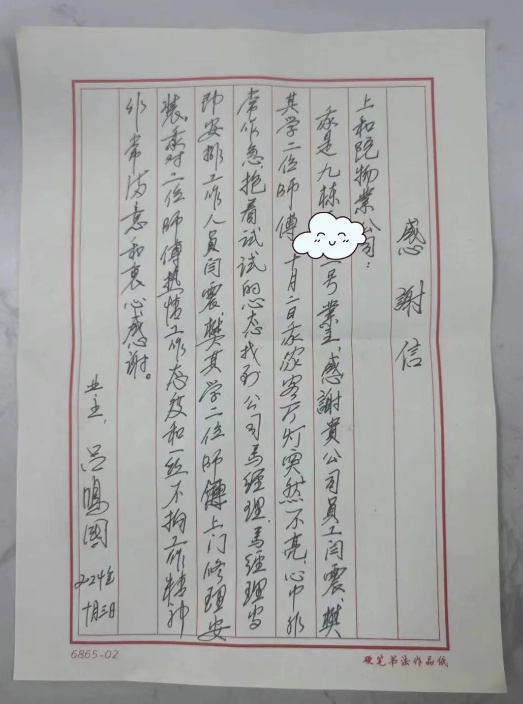 感謝信
上和院物業公司:
我是九栋 号業主,感謝貴公司員工闫震、樊
其学二位师傅 十月二日我家客厅灯突然不亮,心中非
常作急,抱着试试的心态找到公司馬經理,馬經理当
即安排工作人員闫震樊其学二位师傅上门修理安
装,我对二位师傅热情工作态度和一丝不拘工作精神
非常满意和衷心感谢。
业主、吕鳴國
2024年
十月三日
6865-02
硬笔书法作品纸